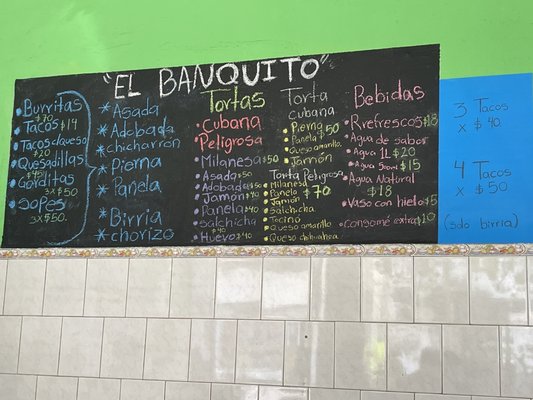 "EL BANQUITO"
• Burritas
$20
• Tacos $14
• Tacos c/queso
$20
• Quesadillas
$45
• Gorditas
3x $50
• Sopes
3x $50.
* Asada
* Adobada
* chicharrón
* Pierna
* Panela
* Birria
* chorizo
Tortas
• Cubana
Peligrosa
• Milanesa $50
• Asada $50
• Adobada $50
• Jamón $40
• Panela $40
• Salchicha
$40
• Huevo $40
Torta
cubana
• Pierna
• Panela $50
• Queso amarillo
• Jamón
Torta Peligrosa
• Milanesa
• Panela $70
• Jamón
• Salchicha
• Tocino
• Queso amarillo
• Queso chihuahua
Bebidas
• Rrefrescos $18
• Agua de sabor
• Agua 1L $20
• Agua 500ml $15
• Agua Natural
$18
• Vaso con hielo $5
• Consomé extra $10
3 Tacos
x $40.
4 Tacos
x $50
(solo birria)